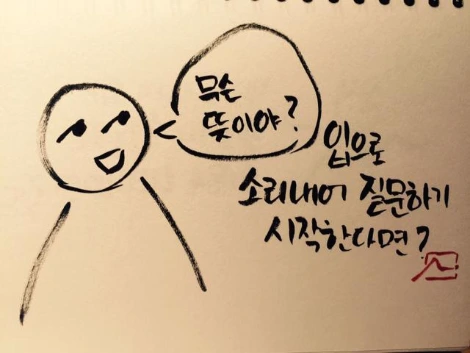 무슨
뜻이야?
입으로
소리내어 질문하기
시작한다면?